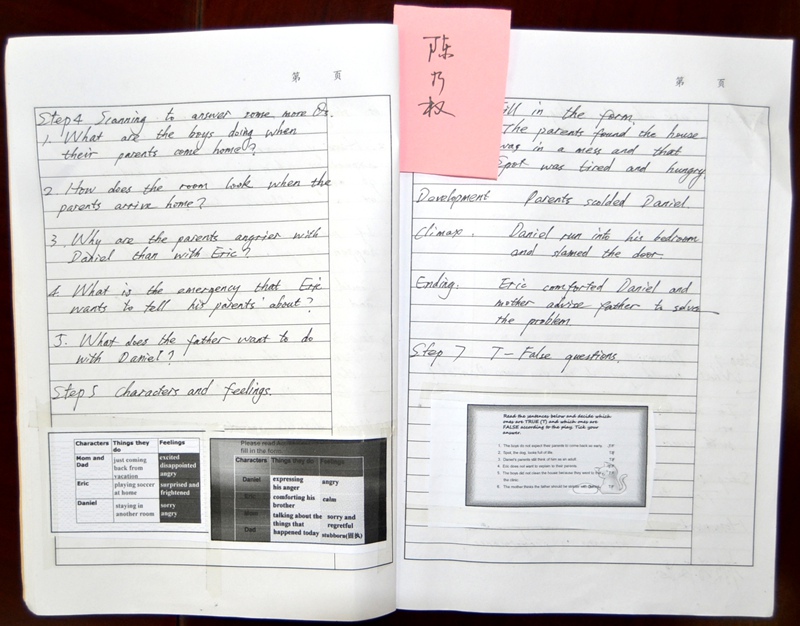 第 页
Step 4 Scanning to answer some more Qs.
1. What are the boys doing when
their parents come home?
2. How does the room look when the
parents arrive home?
3. Why are the parents angrier with
Daniel than with Eric?
4. What is the emergency that Eric
wants to tell his parents about?
5. What does the father want to do
with Daniel?
Step 5 Characters and feelings.
Characters Things they do Feelings
Mom and Dad just coming back from vacation excited disappointed angry
Eric playing soccer at home surprised and frightened
Daniel staying in another room sorry angry
Please read
fill in the form
Characters Things they do Feelings
Daniel expressing his anger angry
Eric comforting his brother calm
Mom talking about the things that happened today sorry and regretful
Dad stubborn(固执)
陈
乃
权
第 页
fill in the form
The parents found the house
was in a mess and that
Spot was tired and hungry.
Development Parents scolded Daniel.
Climax. Daniel run into his bedroom
and slamed the door.
Ending. Eric comforted Daniel and
mother advise father to solve
the problem
Step 7 T-False questions.
Read the sentences below and decide which
ones are TRUE (T) and which ones are
FALSE according to the play. Tick your
answer.
1. The boys do not expect their parents to come back so early.
2. Spot, the dog, looks full of life.
3. Daniel's parents still think of him as an adult.
4. Eric does not want to explain to their parents.
5. The boys did not clean the house because they went to
the clinic.
6. The mother thinks the father should be